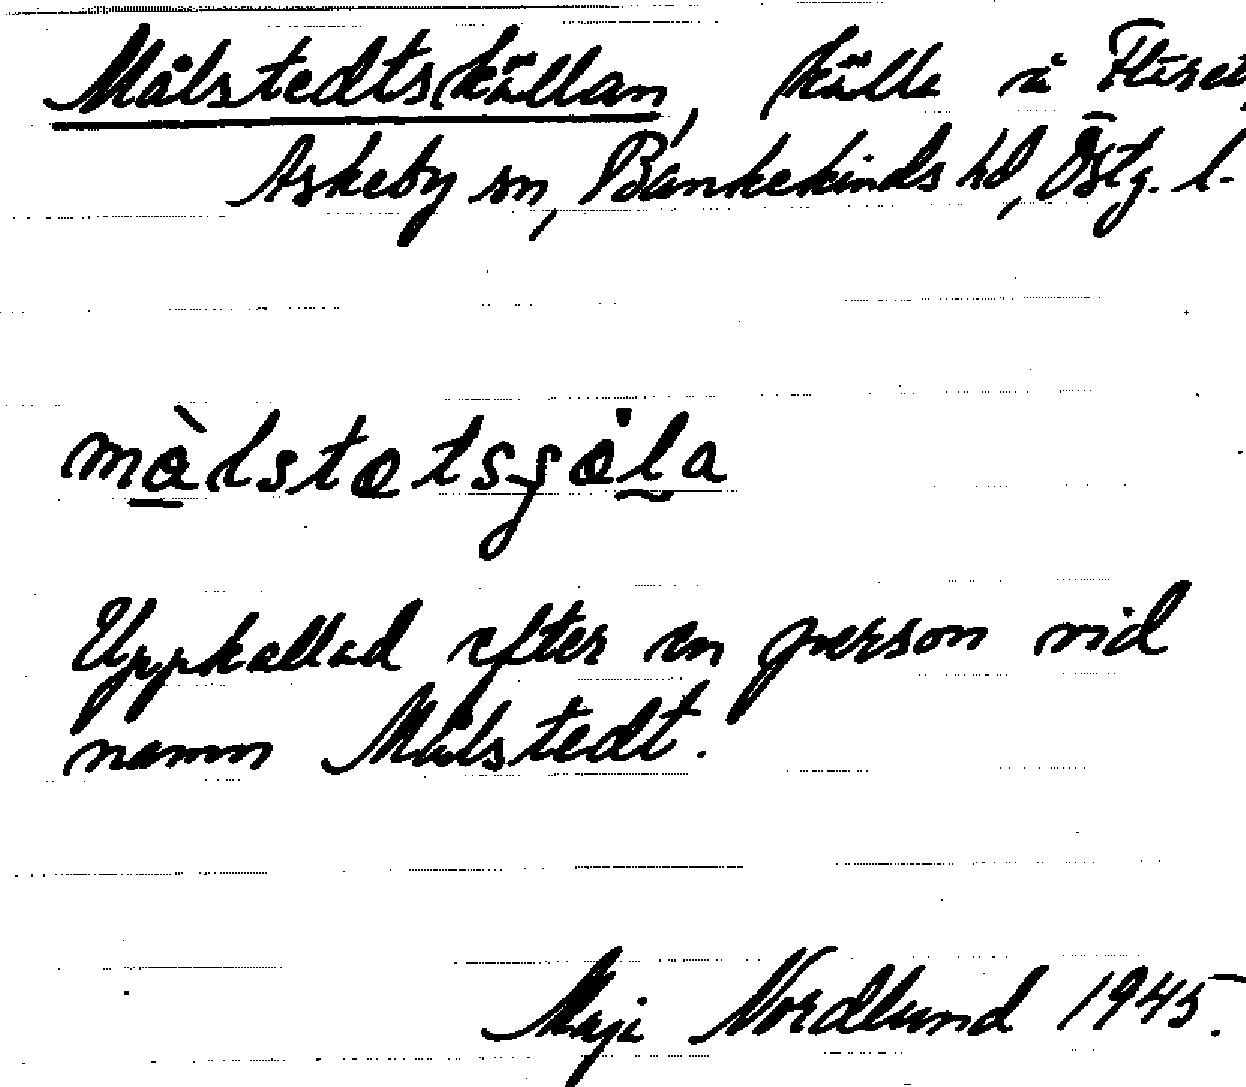 Målstedtskällan, källa i
Askeby sn, Bankekinds hd, Östg. l.
Uppkallad efter en person vid
namn Målstedt.
Maja Nordlund 1945.